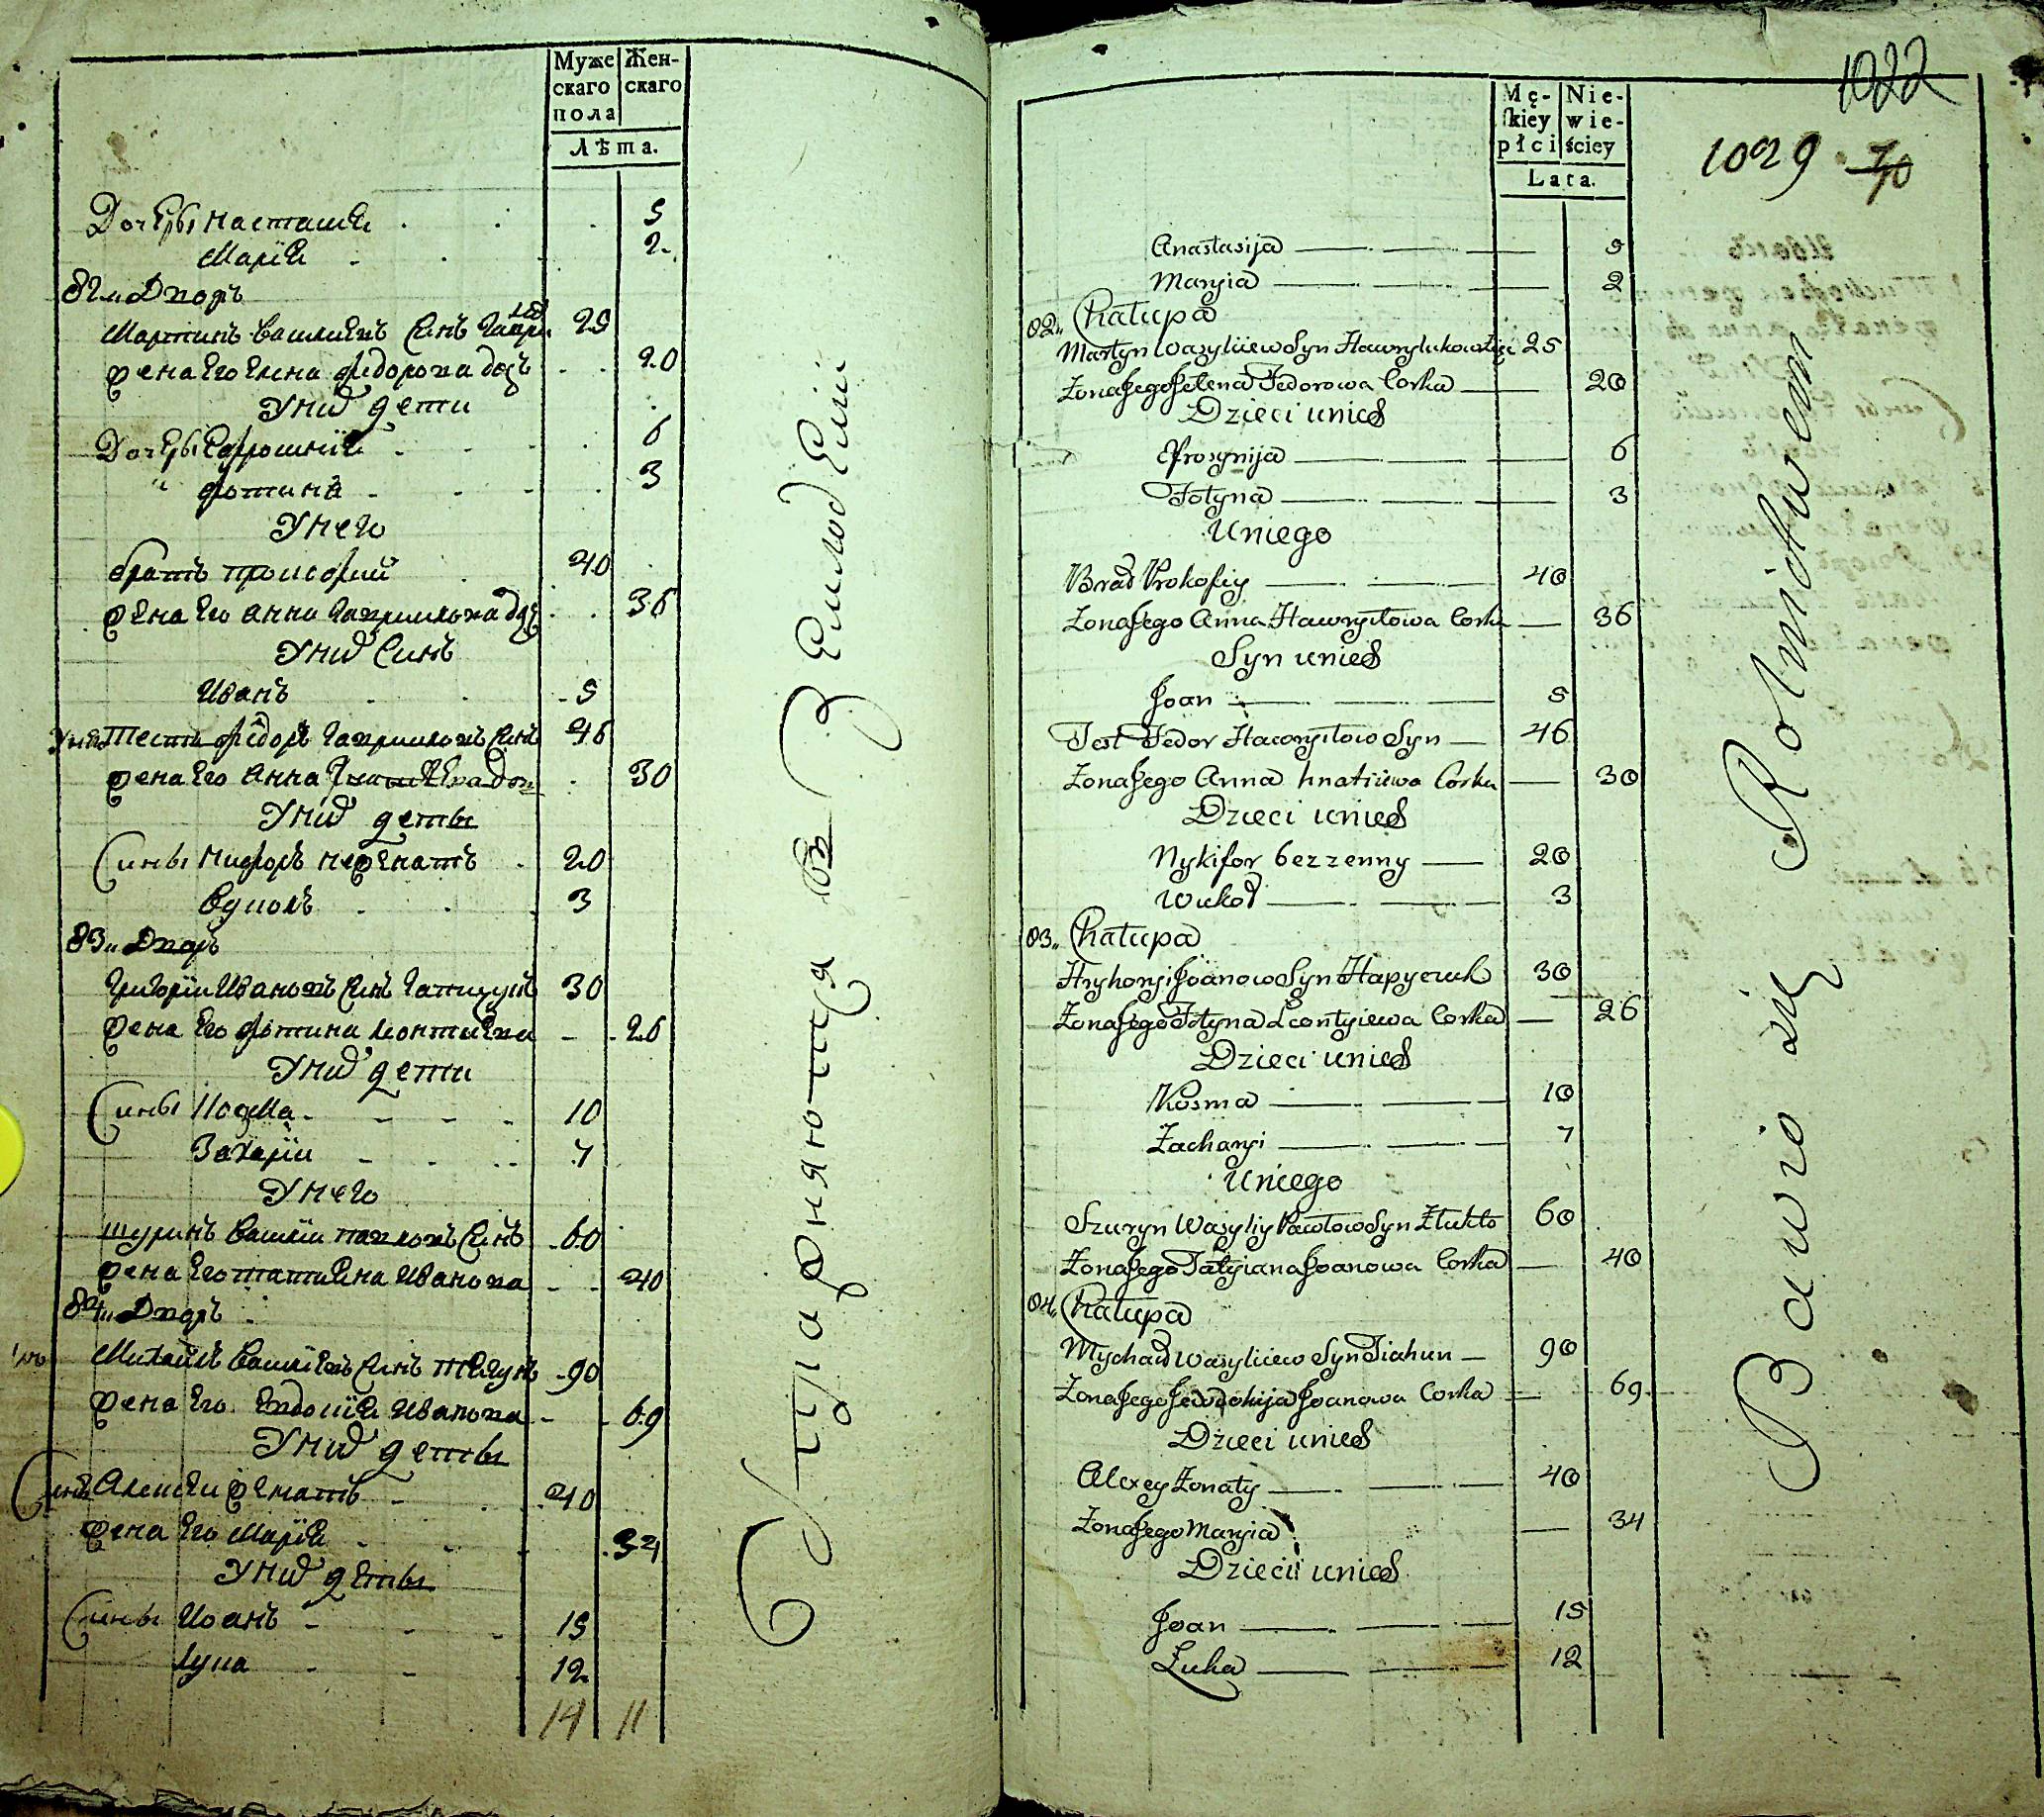 Муже
скаго
пола
Жен-
скаго
Лѣта.
Дочеры Насташіѧ 5
Маріѧ 2
82" Дворъ
Мартинъ Василиевъ Синъ 25
жена Его Елена Федорова доч 20
У них дети
Дочеры Ефросиніѧ 6
" Фотина 3
У него
братъ Прокофий 40
жена Его Анна Гаврилова доч 36
У них Синъ
Иванъ 5
У них Тесть Федоръ Гавриловъ Синъ 46
жена Его Анна Гнатиева доч 30
У них деты
Сины Никифоръ неженатъ 20
Вуколъ 3
83" Дворъ
Григорій Ивановъ Синъ 30
жена Его Фотина Леонтиева 26
У них дети
Сины Козма 10
Захарій 7
У него
Шуринъ Василій Павловъ Синъ 60
жена Его Татиѧна Иванова 40
84" Дворъ
Михайлъ Василіевъ Синъ Тѧгунъ 90
жена Его Евдокиіѧ Иванова 69
У них деты
Синъ Алексѣй женатъ 40
жена Его Маріѧ 34
У них деты
Сины Иоанъ 15
Лука 12
14 11
Упражняютця въ Земледѣліи
Mę-
ſkiey
płci
Nie-
wie-
ściey
Lata.
1022
1029 70
Anastasija 5
Maryia 2
82" Chałupa
Martyn Wasyliiew Syn 25
Zona Jego Jełena Fedorowa Corka 20
Dzieci unich
Efrosynija 6
Fotyna 3
Uniego
Brad Prokofiy 40
Zona Jego Anna Hawryłowa Corka 36
Syn unich
Joan 5
Test Fedor Hawryłow Syn 46
Zona Jego Anna hnatiiewa Corka 30
Dzieci unich
Nykifor bezzenny 20
Wukoł 3
83" Chałupa
Hryhoryi Joanow Syn Hapyczuk 30
Zona Jego Fotyna Leontyiewa Corka 26
Dzieci unich
Kosma 10
Zacharyi 7
Uniego
Szuryn Wasyliy Pawłow Syn Złukto 60
Zona Jego Tatyiana Joanowa Corka 40
84" Chałupa
Mychaił Wasyliiew Syn Tiahun 90
Zona Jego Jewdokija Joanowa Corka 69
Dzieci unich
Alexey Zonaty 40
Zona Jego Maryia 34
Dzieci unich
Joan 15
Łuka 12
Bawio się Rolnictwem